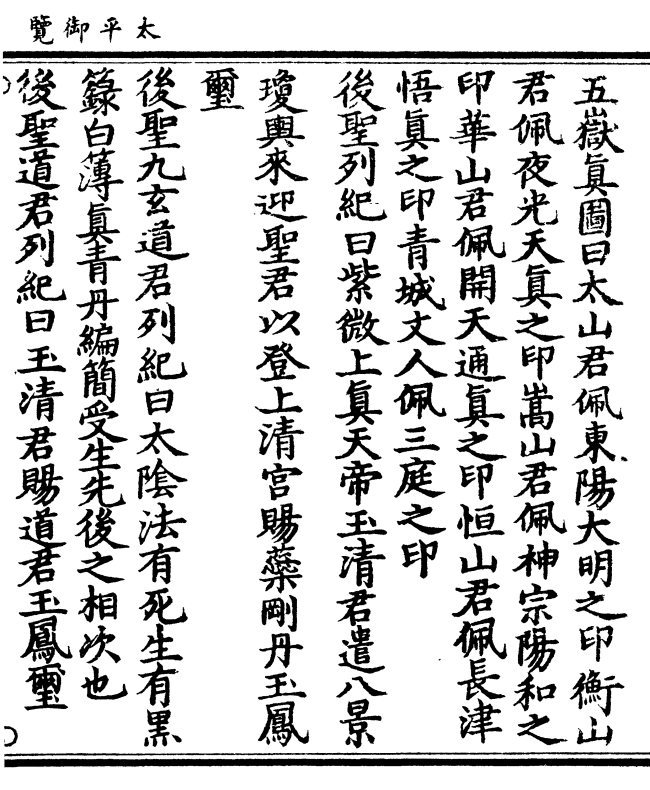 太平御覽
五嶽眞圖曰太山君佩東陽大明之印衡山
君佩夜光天眞之印嵩山君佩神宗陽和之
印華山君佩開天通眞之印恒山君佩長津
悟眞之印青城丈人佩三庭之印
後聖列紀曰紫微上眞天帝玉清君遣八景
瓊輿來迎聖君以登上清宫賜藥剛丹玉鳳
璽
後聖九玄道君列紀曰太陰法有死生有黑
籙白簿眞青丹編簡受生先後之相次也
後聖道君列紀曰玉清君賜道君玉鳳璽